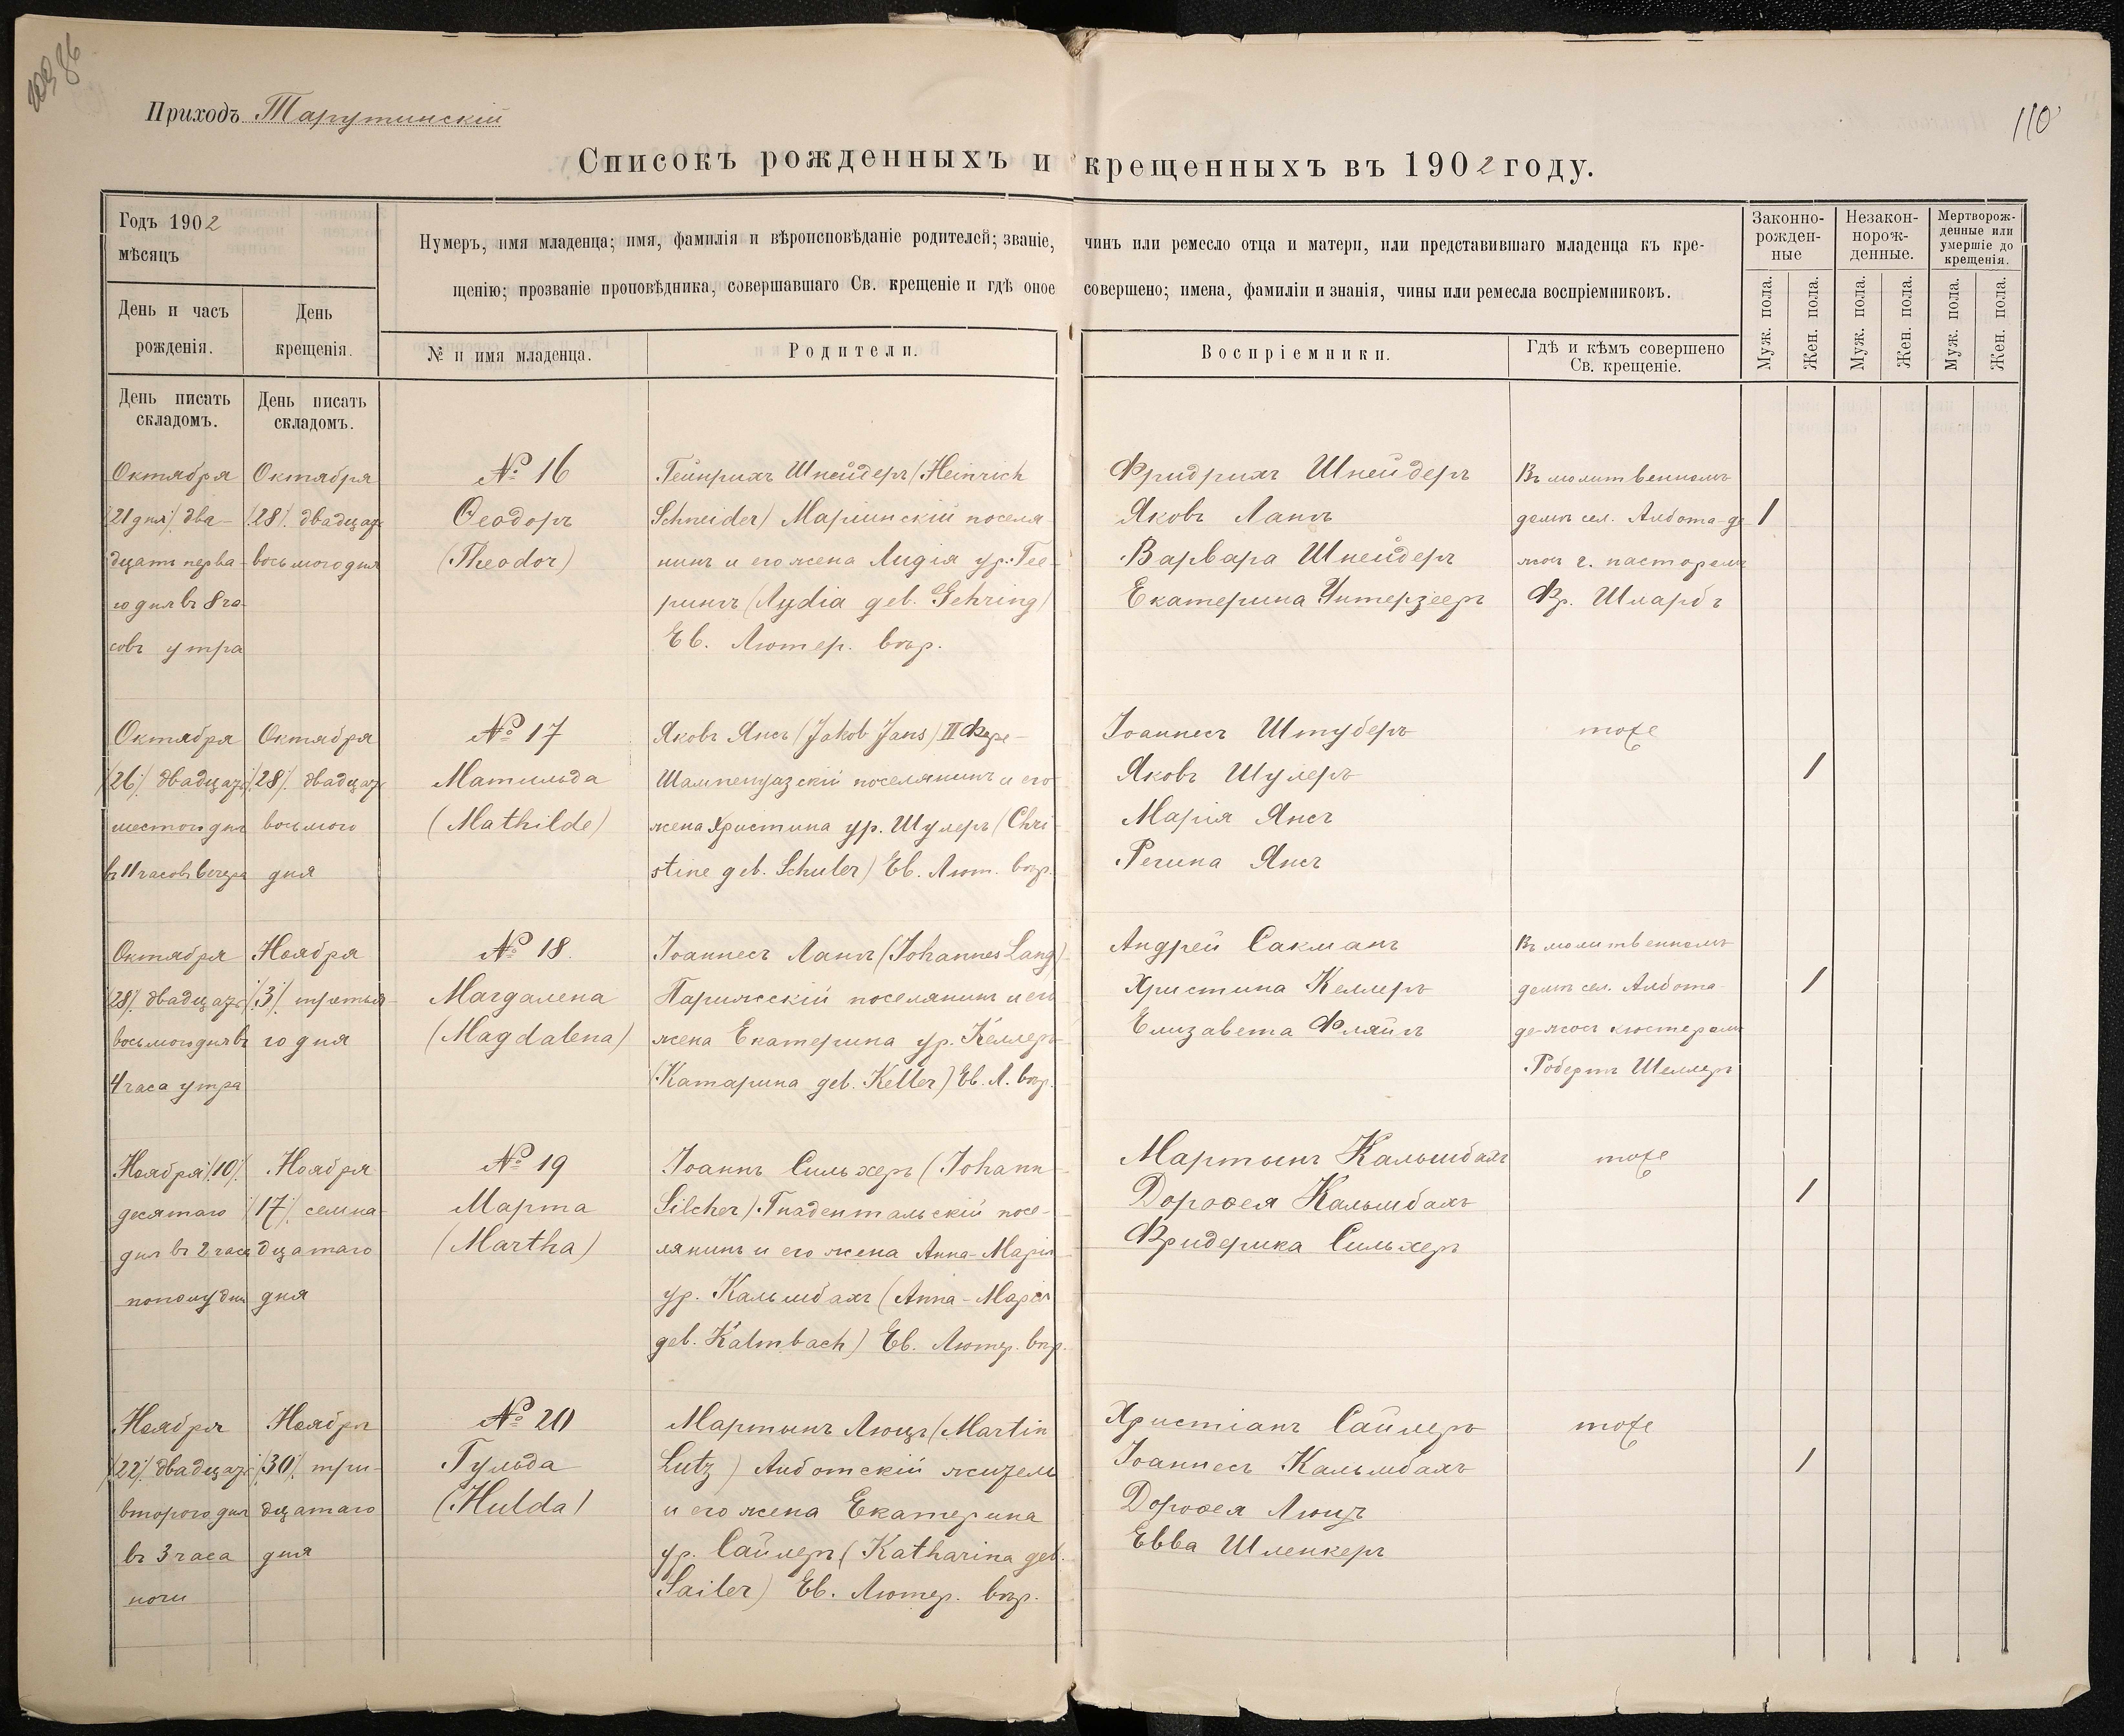 Приходъ Тарутинскій
110
Списокъ рожденныхъ и крещенныхъ въ 1902 году.
Годъ 1902
мѣсяцъ
День и часъ
рожденія.
День
крещенія.
День писать
складомъ.
День писать
складомъ.
Нумеръ, имя младенца; имя, фамилія и вѣроисповѣданіе родителей; званіе, чинъ или ремесло отца и матери, или представившаго младенца къ кре-
щенію; прозваніе проповѣдника, совершавшаго Св. крещеніе и гдѣ оное совершено; имена, фамиліи и знанія, чины или ремесла воспріемниковъ.
№ и имя младенца.
Родители.
Воспріемники.
Гдѣ и кѣмъ совершено
Св. крещеніе.
Законно-
рожден-
ные
Незакон-
норож-
денные.
Мертворож-
денные или
умершіе до
крещенія.
Муж. пола.
Жен. пола.
Муж. пола.
Жен. пола.
Муж. пола.
Жен. пола.
Октября
/21 дня/ два-
дцать перва-
го дня въ 8 ча-
совъ утра
Октября
/28/. двадцать
восьмого дня
№ 16
Ѳеодоръ
(Theodor)
Гейнрихъ Шнейдеръ (Heinrich
Schneider) Маріинскій поселя
нинъ и его жена Лидія ур. Гее-
рингъ (Лydia geb. Gehring)
Ев. Лютер. вѣр.
Фридрихъ Шнейдеръ
Яковъ Лангъ
Варвара Шнейдеръ
Екатерина Унтерзееръ
Въ молитвенномъ
домѣ сел. Албота-де
жос г. пасторомъ
Фр.
1
Октября
/26/. двадцать
шестого дня
въ 11 часовъ вечера
Октября
/28/. двадцать
восьмого
дня
№ 17
Матильда
(Mathilde)
Яковъ Янсъ (Jakob Jans) II Фере-
Шампенуазскій поселянинъ и его
жена Христина ур. Шулеръ (Chri-
stine geb. Schuler) Ев. Лют. вѣр.
Іоаннесъ Штуберъ
Яковъ Шулеръ
Марія Янсъ
Регина Янсъ
тоже
1
Октября
/28/. двадцать
восьмого дня въ
4 часа утра
Ноября
/3/. третья-
го дня
№ 18.
Магдалена
(Magdalena)
Іоаннесъ Лангъ (Johannes Lang)
Парижскій поселянинъ и его
жена Екатерина ур. Келлеръ
(Катарина geb. Keller) Ев. Л. вѣр.
Андрей Сакманъ
Христина Келлеръ
Елизавета Фляйгъ
Въ молитвенномъ
домѣ сел. Албота-
де-жосъ кюстеромъ
Робертъ Шеллеръ
1
Ноября /10/.
десятаго
дня въ 2 часа
пополудни
Ноября
/17/. семна-
дцатаго
дня
№ 19
Марта
(Martha)
Іоаннъ Сильхеръ (Johann
Silcher) Гнадентальскій посе-
лянинъ и его жена Анна-Марія
ур. Кальмбахъ (Anna-Марія
geb. Kalmbach) Ев. Лютер. вѣр.
Мартынъ Кальмбахъ
Дороѳея Кальмбахъ
Фридерика Сильхеръ
тоже
1
Ноября
/22/. двадцать
второго дня
въ 3 часа
ночи
Ноября
/30/. три-
дцатаго
дня
№ 20
Гульда
(Hulda)
Мартынъ Люцъ (Martin
Lutz) Алботскій житель
и его жена Екатерина
ур. Сайлеръ (Katharina geb.
Sailer) Ев. Лютер. вѣр.
Христіанъ Сайлеръ
Іоаннесъ Кальмбахъ
Дороѳея Люцъ
Евва Шленкеръ
тоже
1